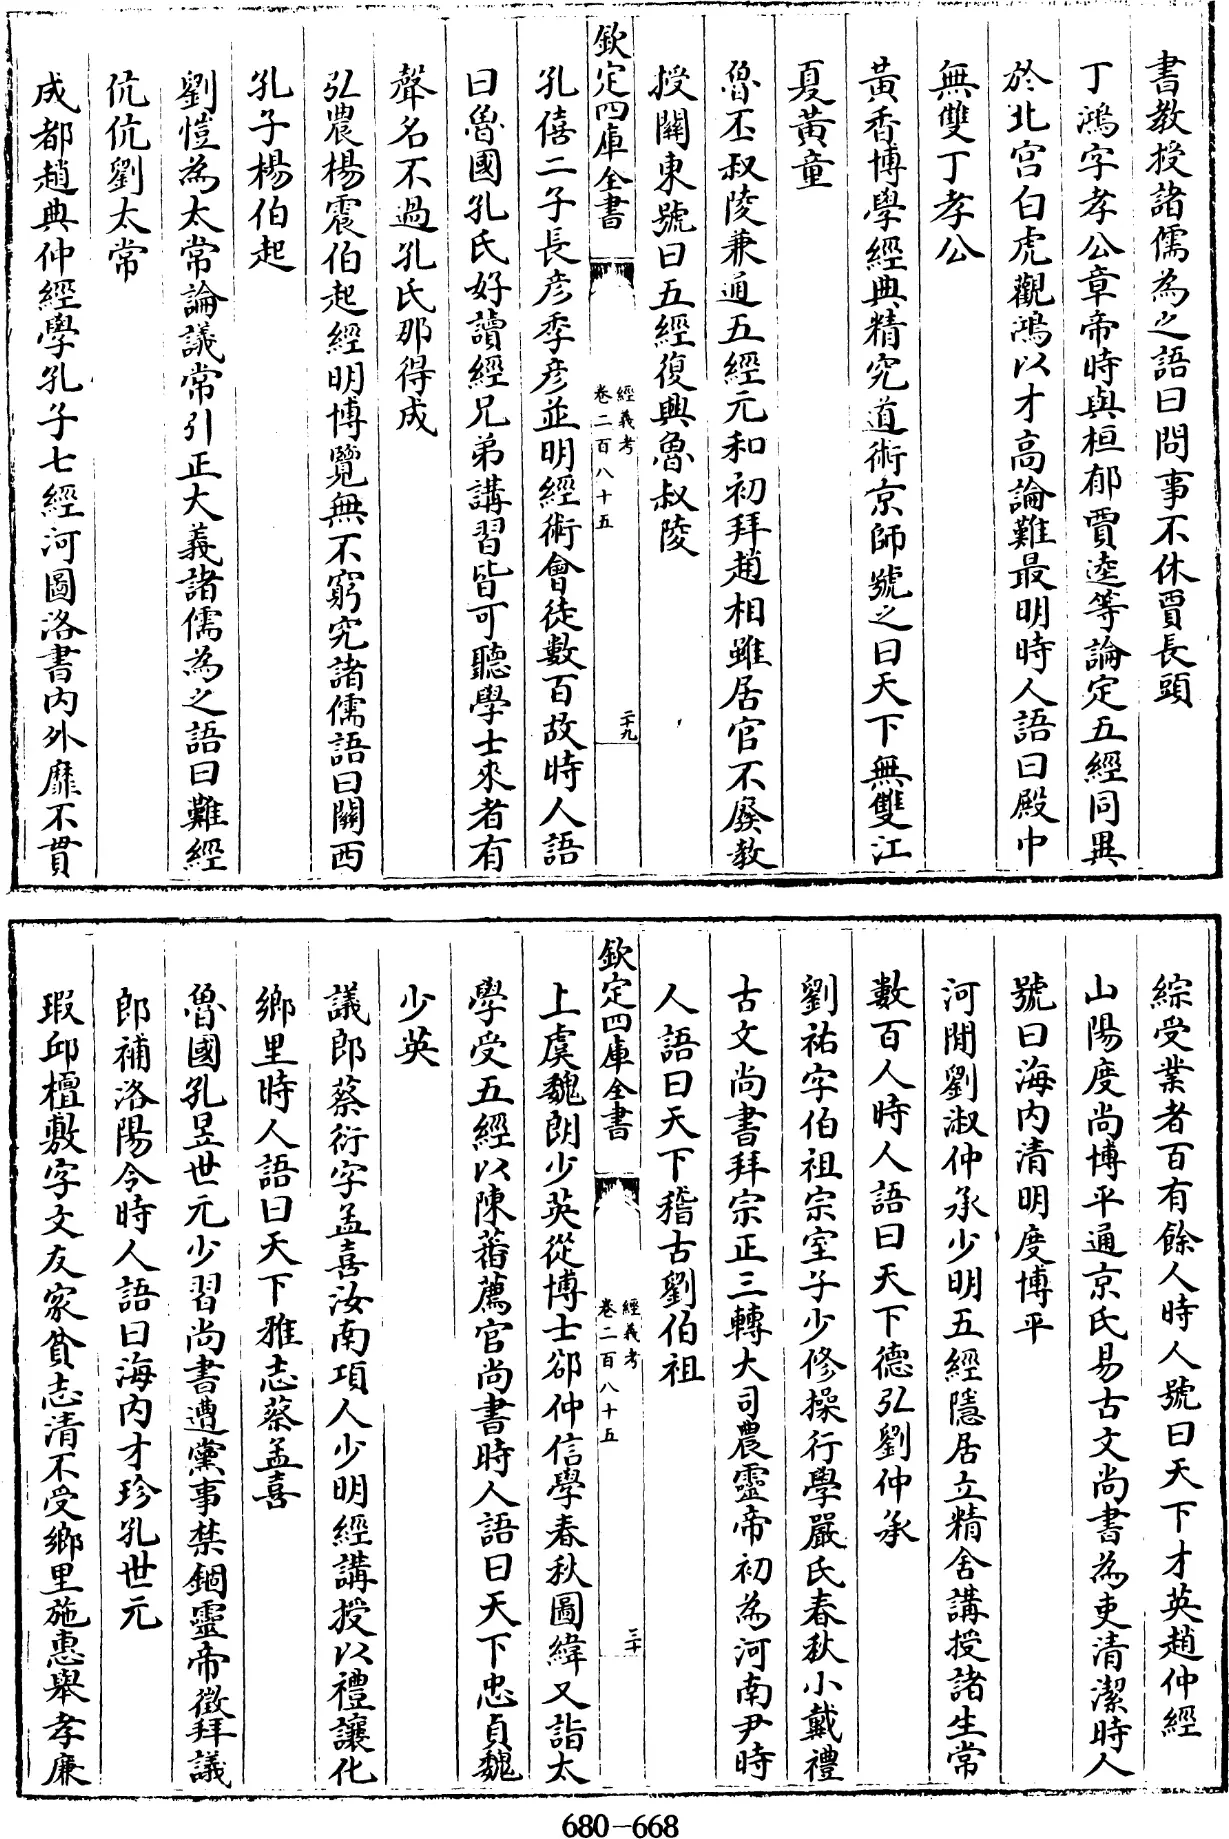 書教授諸儒為之語曰問事不休賈長頭
丁鴻字孝公章帝時與桓郁賈逵等論定五經同異
於北宫白虎觀鴻以才高論難最明時人語曰殿中
無雙丁孝公
黃香博學經典精究道術京師號之曰天下無雙江
夏黃童
魯丕叔陵兼通五經元和初拜趙相雖居官不廢教
授關東號曰五經復興魯叔陵
欽定四庫全書
經義考
卷二百八十五
二十九
孔僖二子長彦季彦並明經術會徒數百故時人語
曰魯國孔氏好讀經兄弟講習皆可聽學士來者有
聲名不過孔氏那得成
弘農楊震伯起經明博覽無不窮究諸儒語曰關西
孔子楊伯起
劉愷為太常論議常引正大義諸儒為之語曰難經
伉伉劉太常
成都趙典仲經學孔子七經河圖洛書内外靡不貫
綜受業者百有餘人時人號曰天下才英趙仲經
山陽度尚博平通京氏易古文尚書為吏清潔時人
號曰海内清明度博平
河間劉淑仲承少明五經隱居立精舍講授諸生常
數百人時人語曰天下德弘劉仲承
劉祐字伯祖宗室子少修操行學嚴氏春秋小戴禮
古文尚書拜宗正三轉大司農靈帝初為河南尹時
人語曰天下稽古劉伯祖
欽定四庫全書
經義考
卷二百八十五
三十
上虞魏朗少英從博士郤仲信學春秋圖緯又詣太
學受五經以陳蕃薦官尚書時人語曰天下忠貞魏
少英
議郎蔡衍字孟喜汝南項人少明經講授以禮讓化
鄉里時人語曰天下雅志蔡孟喜
魯國孔昱世元少習尚書遭黨事禁錮靈帝徵拜議
郎補洛陽令時人語曰海内才珍孔世元
瑕邱檀敷字文友家貧志清不受鄉里施惠舉孝廉
680-668